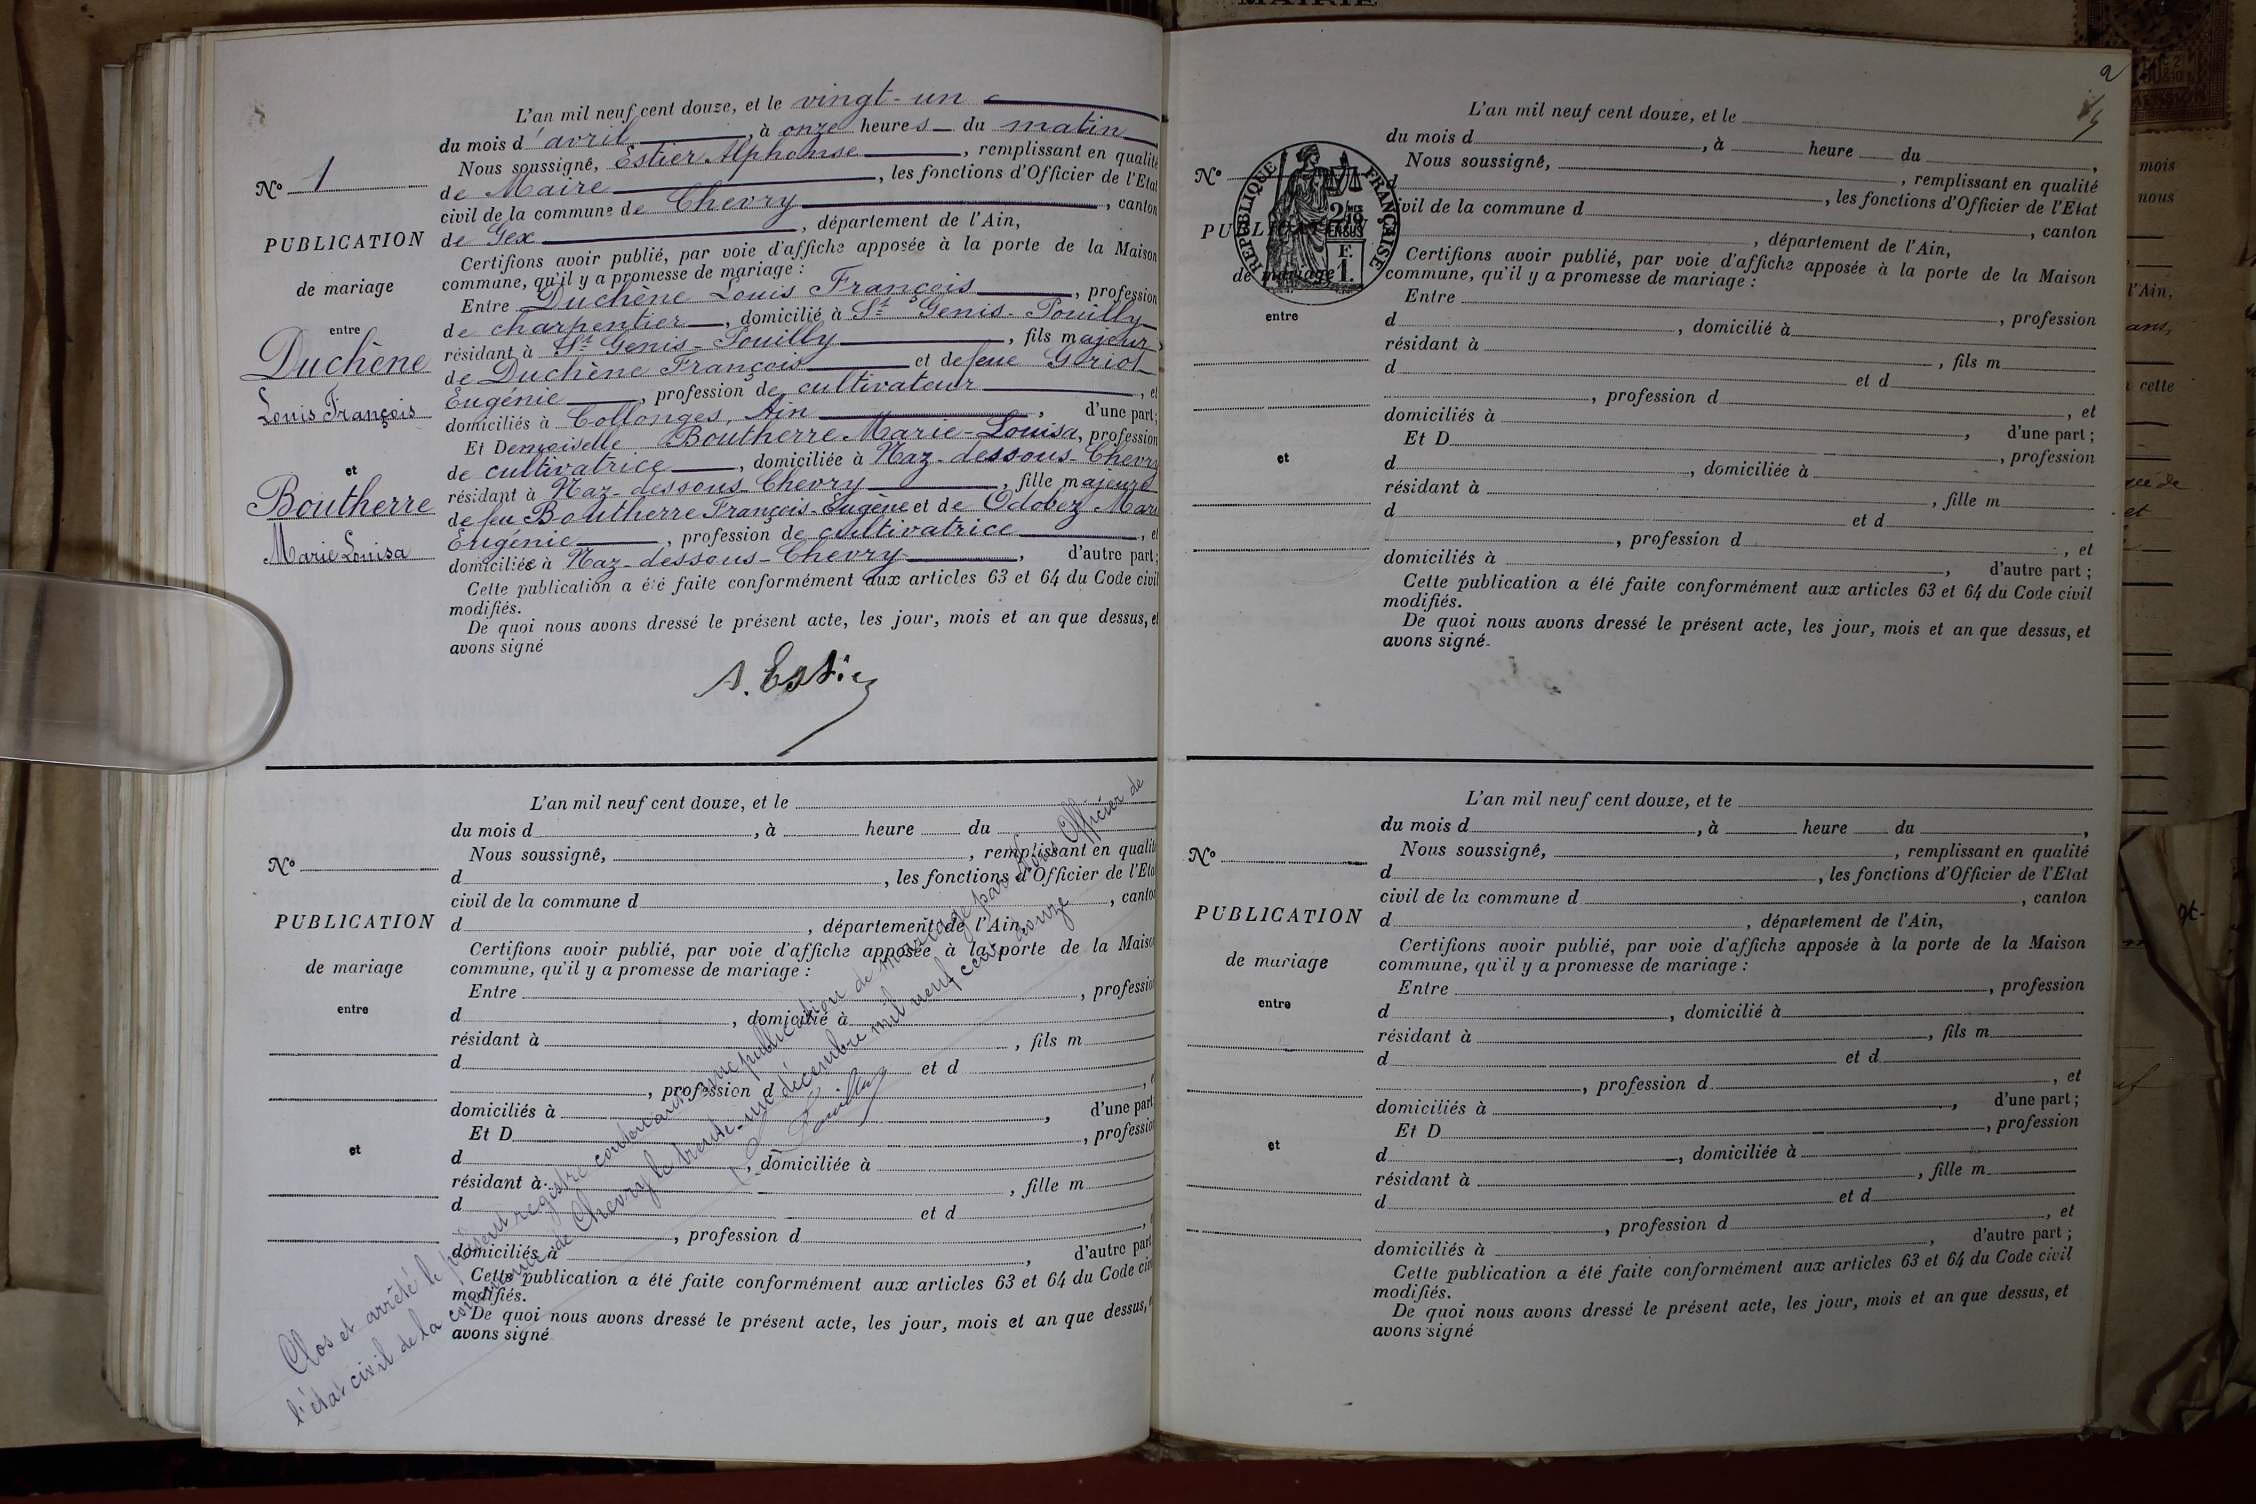 MAIRIE
L'an mil neuf cent douze, et le vingt-un
du mois d'avril, à onze heures du matin
Nous soussigné, Estier Alphonse, remplissant en qualité
de Maire, les fonctions d'Officier de l'Etat
civil de la commune de Chevry, canton
de Gex, département de l'Ain,
Certifions avoir publié, par voie d'affiche apposée à la porte de la Maison
commune, qu'il y a promesse de mariage :
Entre Duchène Louis François, profession
de charpentier, domicilié à St Genis-Pouilly
résidant à St Genis-Pouilly, fils majeur
de Duchène François et de feue Goriot
Eugénie, profession de cultivateur, et
domiciliés à Collonges, Ain, d'une part;
Et Demoiselle Boutherre Marie-Louisa, profession
de cultivatrice, domiciliée à Naz-dessous-Chevry
résidant à Naz-dessous-Chevry, fille majeure
de feu Boutherre François-Eugène et de Odobez Marie
Eugénie, profession de cultivatrice, et
domiciliée à Naz-dessous-Chevry, d'autre part;
Cette publication a été faite conformément aux articles 63 et 64 du Code civil
modifiés.
De quoi nous avons dressé le présent acte, les jour, mois et an que dessus, et
avons signé
A. Estier
No 1
PUBLICATION
de mariage
entre
Duchène
Louis François
et
Boutherre
Marie Louisa
L'an mil neuf cent douze, et le
du mois d, à heure du
Nous soussigné, remplissant en qualité
d, les fonctions d'Officier de l'Etat
civil de la commune d, canton
d, département de l'Ain,
Certifions avoir publié, par voie d'affiche apposée à la porte de la Maison
commune, qu'il y a promesse de mariage :
Entre, profession
d, domicilié à
résidant à, fils m
d et d
, profession d, et
domiciliés à, d'une part
Et D, profession
d, domiciliée à
résidant à, fille m
d et d
, profession d, et
domiciliés à, d'autre part
Cette publication a été faite conformément aux articles 63 et 64 du Code civil
modifiés.
De quoi nous avons dressé le présent acte, les jour, mois et an que dessus, et
avons signé
No
PUBLICATION
de mariage
entre
et
Clos et arrêté le présent registre contenant une publication de mariage par Nous Officier de
l'état civil de la commune de Chevry le trente-un décembre mil neuf cent douze
2
L'an mil neuf cent douze, et le
du mois d, à heure du,
Nous soussigné, remplissant en qualité
d, les fonctions d'Officier de l'Etat
civil de la commune d, canton
, département de l'Ain,
Certifions avoir publié, par voie d'affiche apposée à la porte de la Maison
commune, qu'il y a promesse de mariage :
Entre, profession
d, domicilié à
résidant à, fils m
d et d
, profession d, et
domiciliés à, d'une part ;
Et D, profession
d, domiciliée à
résidant à, fille m
d et d
, profession d, et
domiciliés à, d'autre part ;
Cette publication a été faite conformément aux articles 63 et 64 du Code civil
modifiés.
De quoi nous avons dressé le présent acte, les jour, mois et an que dessus, et
avons signé
No
PUBLICATION
de mariage
entre
et
REPUBLIQUE FRANÇAISE
2/10
EN SUS
F.
1.
L'an mil neuf cent douze, et te
du mois d, à heure du,
Nous soussigné, remplissant en qualité
d, les fonctions d'Officier de l'Etat
civil de la commune d, canton
d, département de l'Ain,
Certifions avoir publié, par voie d'affiche apposée à la porte de la Maison
commune, qu'il y a promesse de mariage :
Entre, profession
d, domicilié à
résidant à, fils m
d et d
, profession d, et
domiciliés à, d'une part ;
Et D, profession
d, domiciliée à
résidant à, fille m
d et d
, profession d, et
domiciliés à, d'autre part ;
Cette publication a été faite conformément aux articles 63 et 64 du Code civil
modifiés.
De quoi nous avons dressé le présent acte, les jour, mois et an que dessus, et
avons signé
No
PUBLICATION
de mariage
entre
et
mois
nous
l'Ain,
ans,
cette